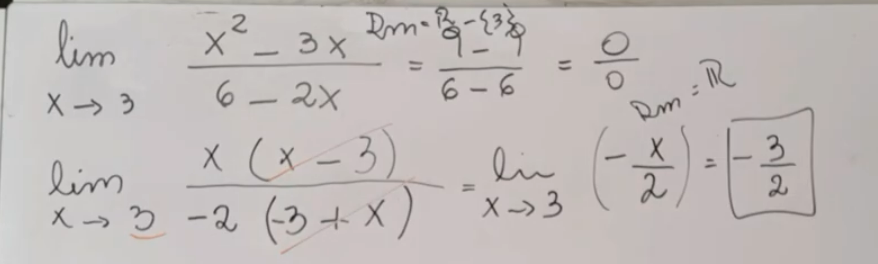 lim x→3 (x² - 3x)/(6 - 2x) = (9 - 9)/(6 - 6) = 0/0 Dm = ℝ - {3}
lim x→3 x(x - 3)/(-2(-3 + x)) = lim x→3 (-x/2) = -3/2 Dm = ℝ